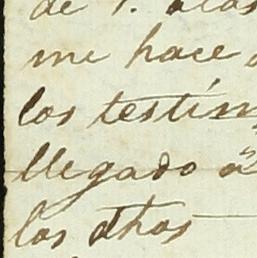 de
me hace
los testim
llegado á
los dhos